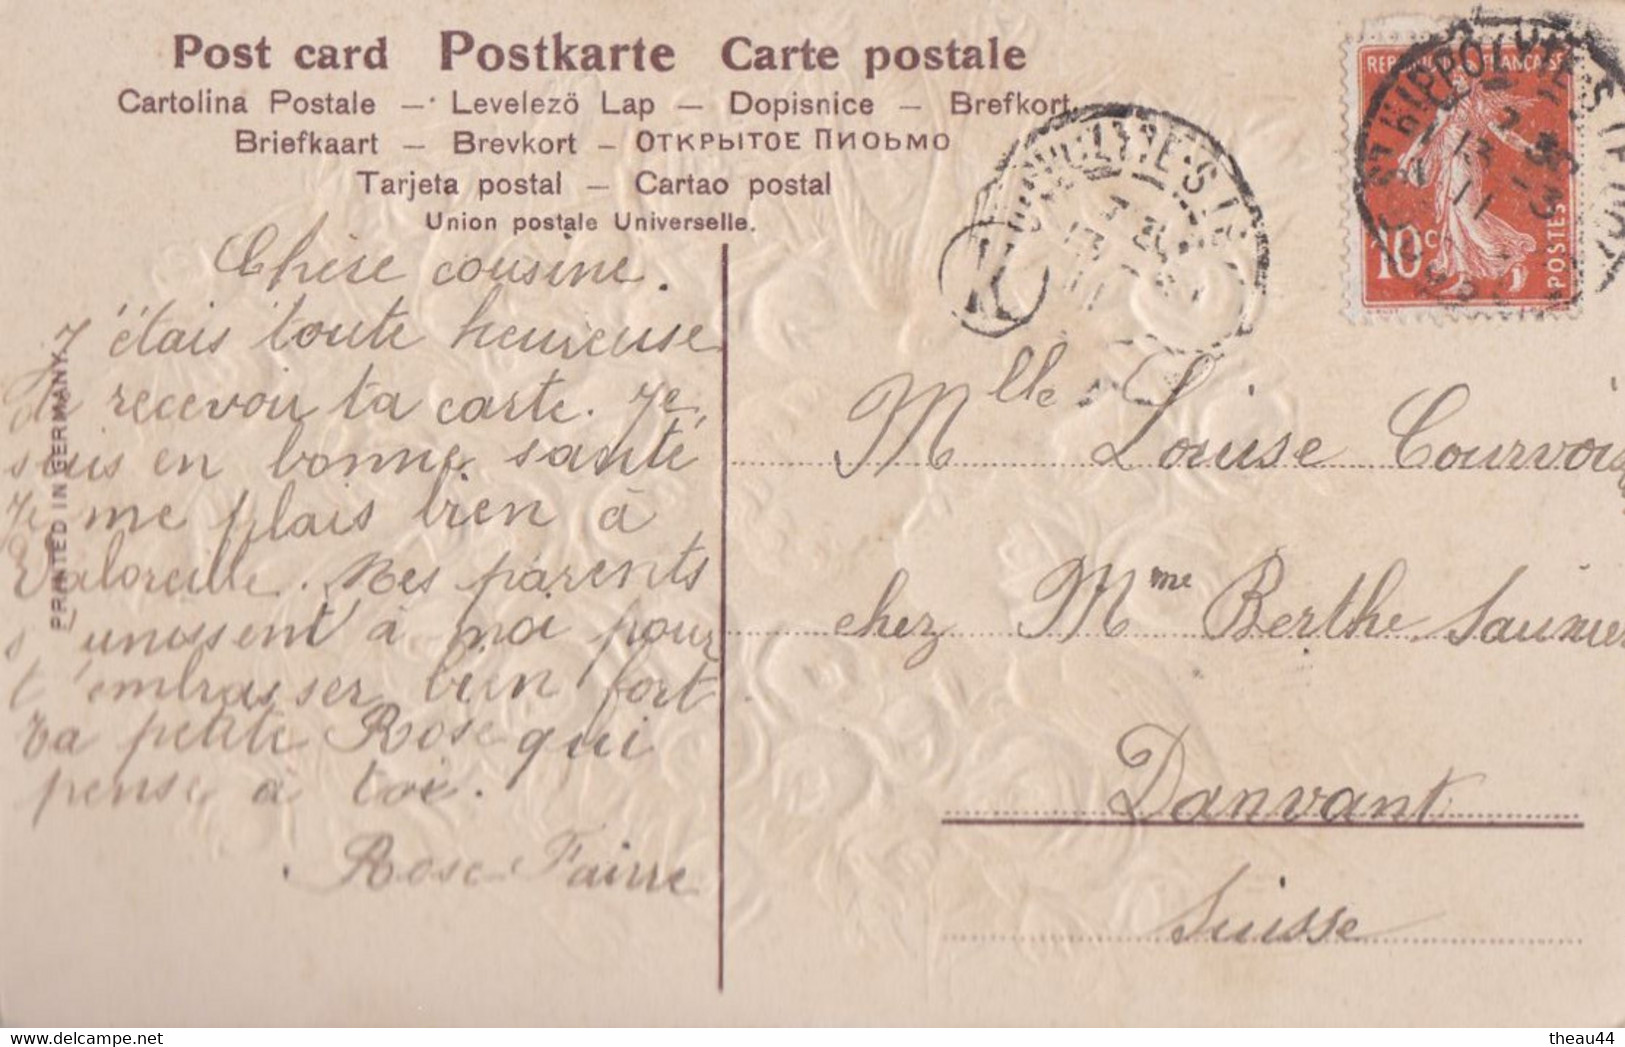 Post card Postkarte Carte postale
Cartolina Postale – Levelezö Lap – Dopisnice – Brefkort
Briefkaart – Brevkort – ОТКРЫТОЕ ПИОЬМО
Tarjeta postal – Cartao postal
Union postale Universelle.
Chère cousine.
J'étais toute heureuse
de recevoir ta carte. Je
suis en bonne santé
Je me plais bien à
Valoreille. Mes parents
s'unissent à moi pour
t'embrasser bien fort
Ta petite Rose qui
pense à toi.
Rose Faivre
PRINTED IN GERMANY
REPUBLIQUE FRANÇAISE
10c
POSTES
ST HIPPOLYTE-S
13
11
K
Mlle Louise Courvois
chez Mme Berthe Saunier
Danvant
Suisse
delcampe.net
theau44